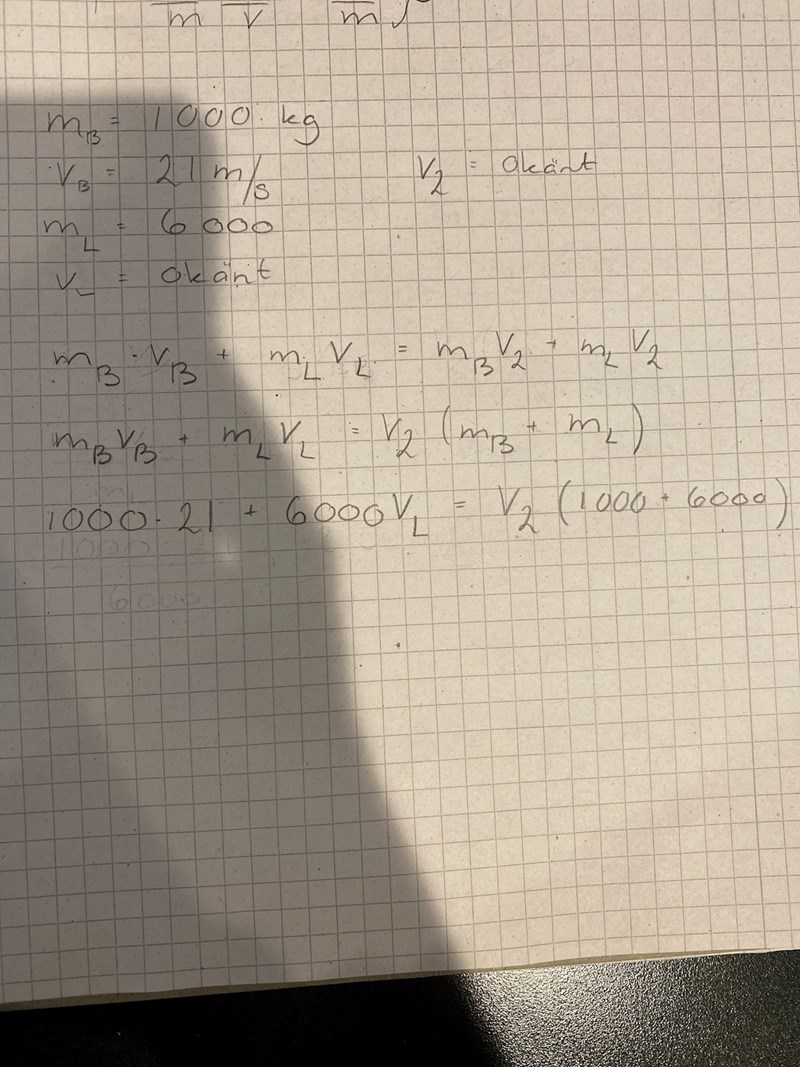 m v m
m_B = 1000 kg
v_B = 21 m/s V_2 = Okänt
m_L = 6000
v_L = Okänt
m_B · v_B + m_L V_L = m_B V_2 + m_L V_2
m_B v_B + m_L V_L = V_2 (m_B + m_L)
1000 · 21 + 6000 V_L = V_2 (1000 + 6000)
1000
6000